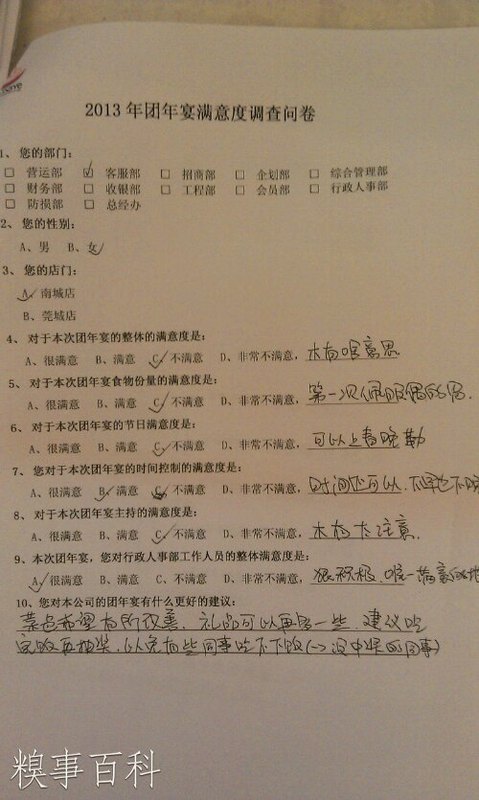 2013 年团年宴满意度调查问卷
1、 您的部门:
□ 营运部 ☑ 客服部 □ 招商部 □ 企划部 □ 综合管理部
□ 财务部 □ 收银部 □ 工程部 □ 会员部 □ 行政人事部
□ 防损部 □ 总经办
2、 您的性别:
A、男 B、女✓
3、 您的店门:
A、南城店
B、莞城店
4、 对于本次团年宴的整体的满意度是:
A、很满意 B、满意 C、不满意 D、非常不满意, 木有啥意思
5、 对于本次团年宴食物份量的满意度是:
A、很满意 B、满意 C、不满意 D、非常不满意, 第一次佩服偶的
6、 对于本次团年宴的节目满意度是:
A、很满意 B、满意 C、不满意 D、非常不满意, 可以上春晚勒
7、 您对于本次团年宴的时间控制的满意度是:
A、很满意 B、满意 C、不满意 D、非常不满意, 时间还可以,不早也不晚
8、 对于本次团年宴主持的满意度是:
A、很满意 B、满意 C、不满意 D、非常不满意, 木有太注意.
9、 本次团年宴,您对行政人事部工作人员的整体满意度是:
A、很满意 B、满意 C、不满意 D、非常不满意, 狠积极,唯一满意的地
10、您对本公司的团年宴有什么更好的建议:
菜色希望有所改善,礼品可以再多一些,建议吃
完饭再抽奖,以免有些同事吃不下饭(--没中奖的同事)
糗事百科